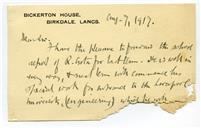 BICKERTON HOUSE,
BIRKDALE, LANCS.
Aug. 7, 1917.
Dear Sir,
I have the pleasure to forward the school
report of R. for last term. He is well in
every way, & next term will commence his
special work for entrance to the Liverpool
University, (Engineering) which he